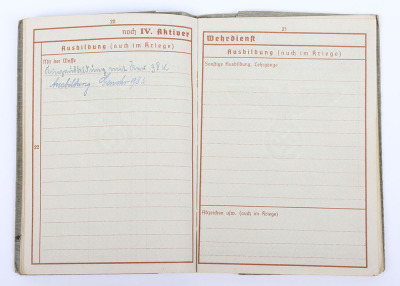 20
noch IV. Aktiver
Ausbildung (auch im Kriege)
Mit der Waffe
mit 98 k
Ausbildung:
22
21
Wehrdienst
Ausbildung (auch im Kriege)
Sonstige Ausbildung, Lehrgänge
Abzeichen usw. (auch im Kriege)